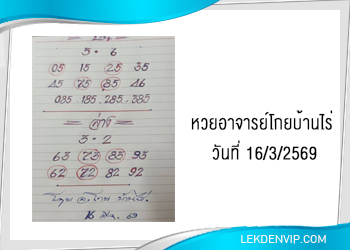 = บน =
5 - 6
05 15 25 35
45 75 85 46
035 . 185 . 285 . 385
= ล่าง =
3 - 2
63 73 83 93
62 72 82 92
16 มี.ค. 69
หวยอาจารย์โกยบ้านไร่
วันที่ 16/3/2569
LEKDENVIP.COM